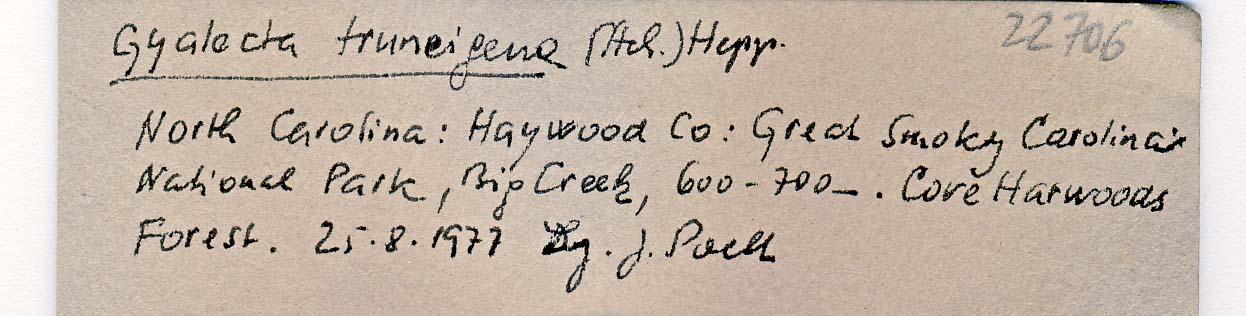 22706
Gyalecta truncigena (Ach.) Hepp.
North Carolina: Haywood Co: Great Smoky Carolina's
National Park, Big Creek, 600-700 m. Cove Harwoods
Forest. 25.8.1977 Lg. J. Poelt